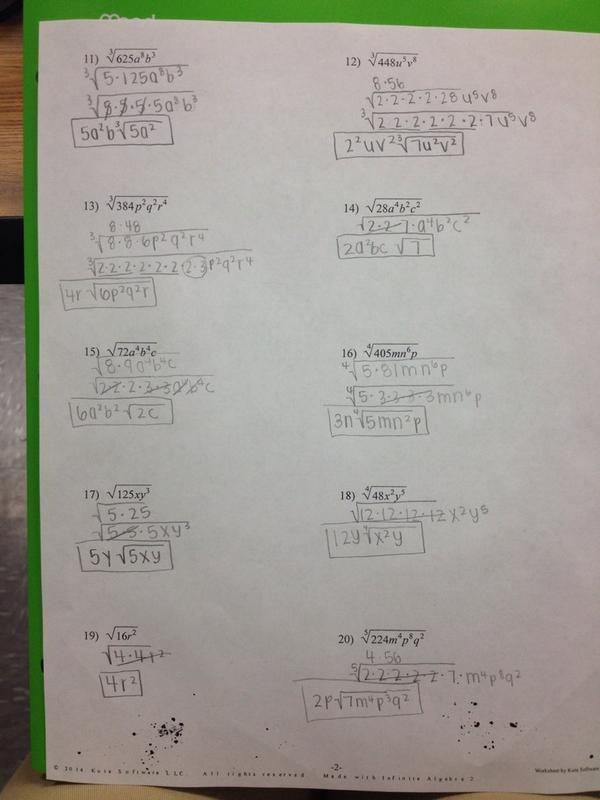 11) ∛625a⁸b³
∛5·125a⁸b³
∛5·5·5·5a⁸b³
5a²b∛5a²
12) ∛448u⁵v⁸
8·56
√2·2·2·2·28u⁵v⁸
∛2·2·2·2·2·2·7u⁵v⁸
2²uv²∛7u²v²
13) ∛384p²q²r⁴
8·48
∛8·8·6p²q²r⁴
∛2·2·2·2·2·2·2·3p²q²r⁴
4r√6p²q²r
14) √28a⁴b²c²
√2·2·7·a⁴b²c²
2a²bc√7
15) √72a⁴b⁴c
√8·9a⁴b⁴c
√2·2·2·3·3a⁴b⁴c
6a²b²√2c
16) ∜405mn⁶p
∜5·81mn⁶p
∜5·3·3·3·3mn⁶p
3n∜5mn²p
17) √125xy³
√5·25
√5·5·5xy³
5y√5xy
18) ∜48x²y⁵
√12·12·12·12x²y⁵
12y∜x²y
19) √16r²
√4·4r²
4r²
20) ⁵√224m⁴p⁸q²
4·56
⁵√2·2·2·2·2·7·m⁴p⁸q²
2p√7m⁴p³q²
-2-
© 2014 Kuta Software LLC. All rights reserved. Made with Infinite Algebra 2.
Worksheet by Kuta Software